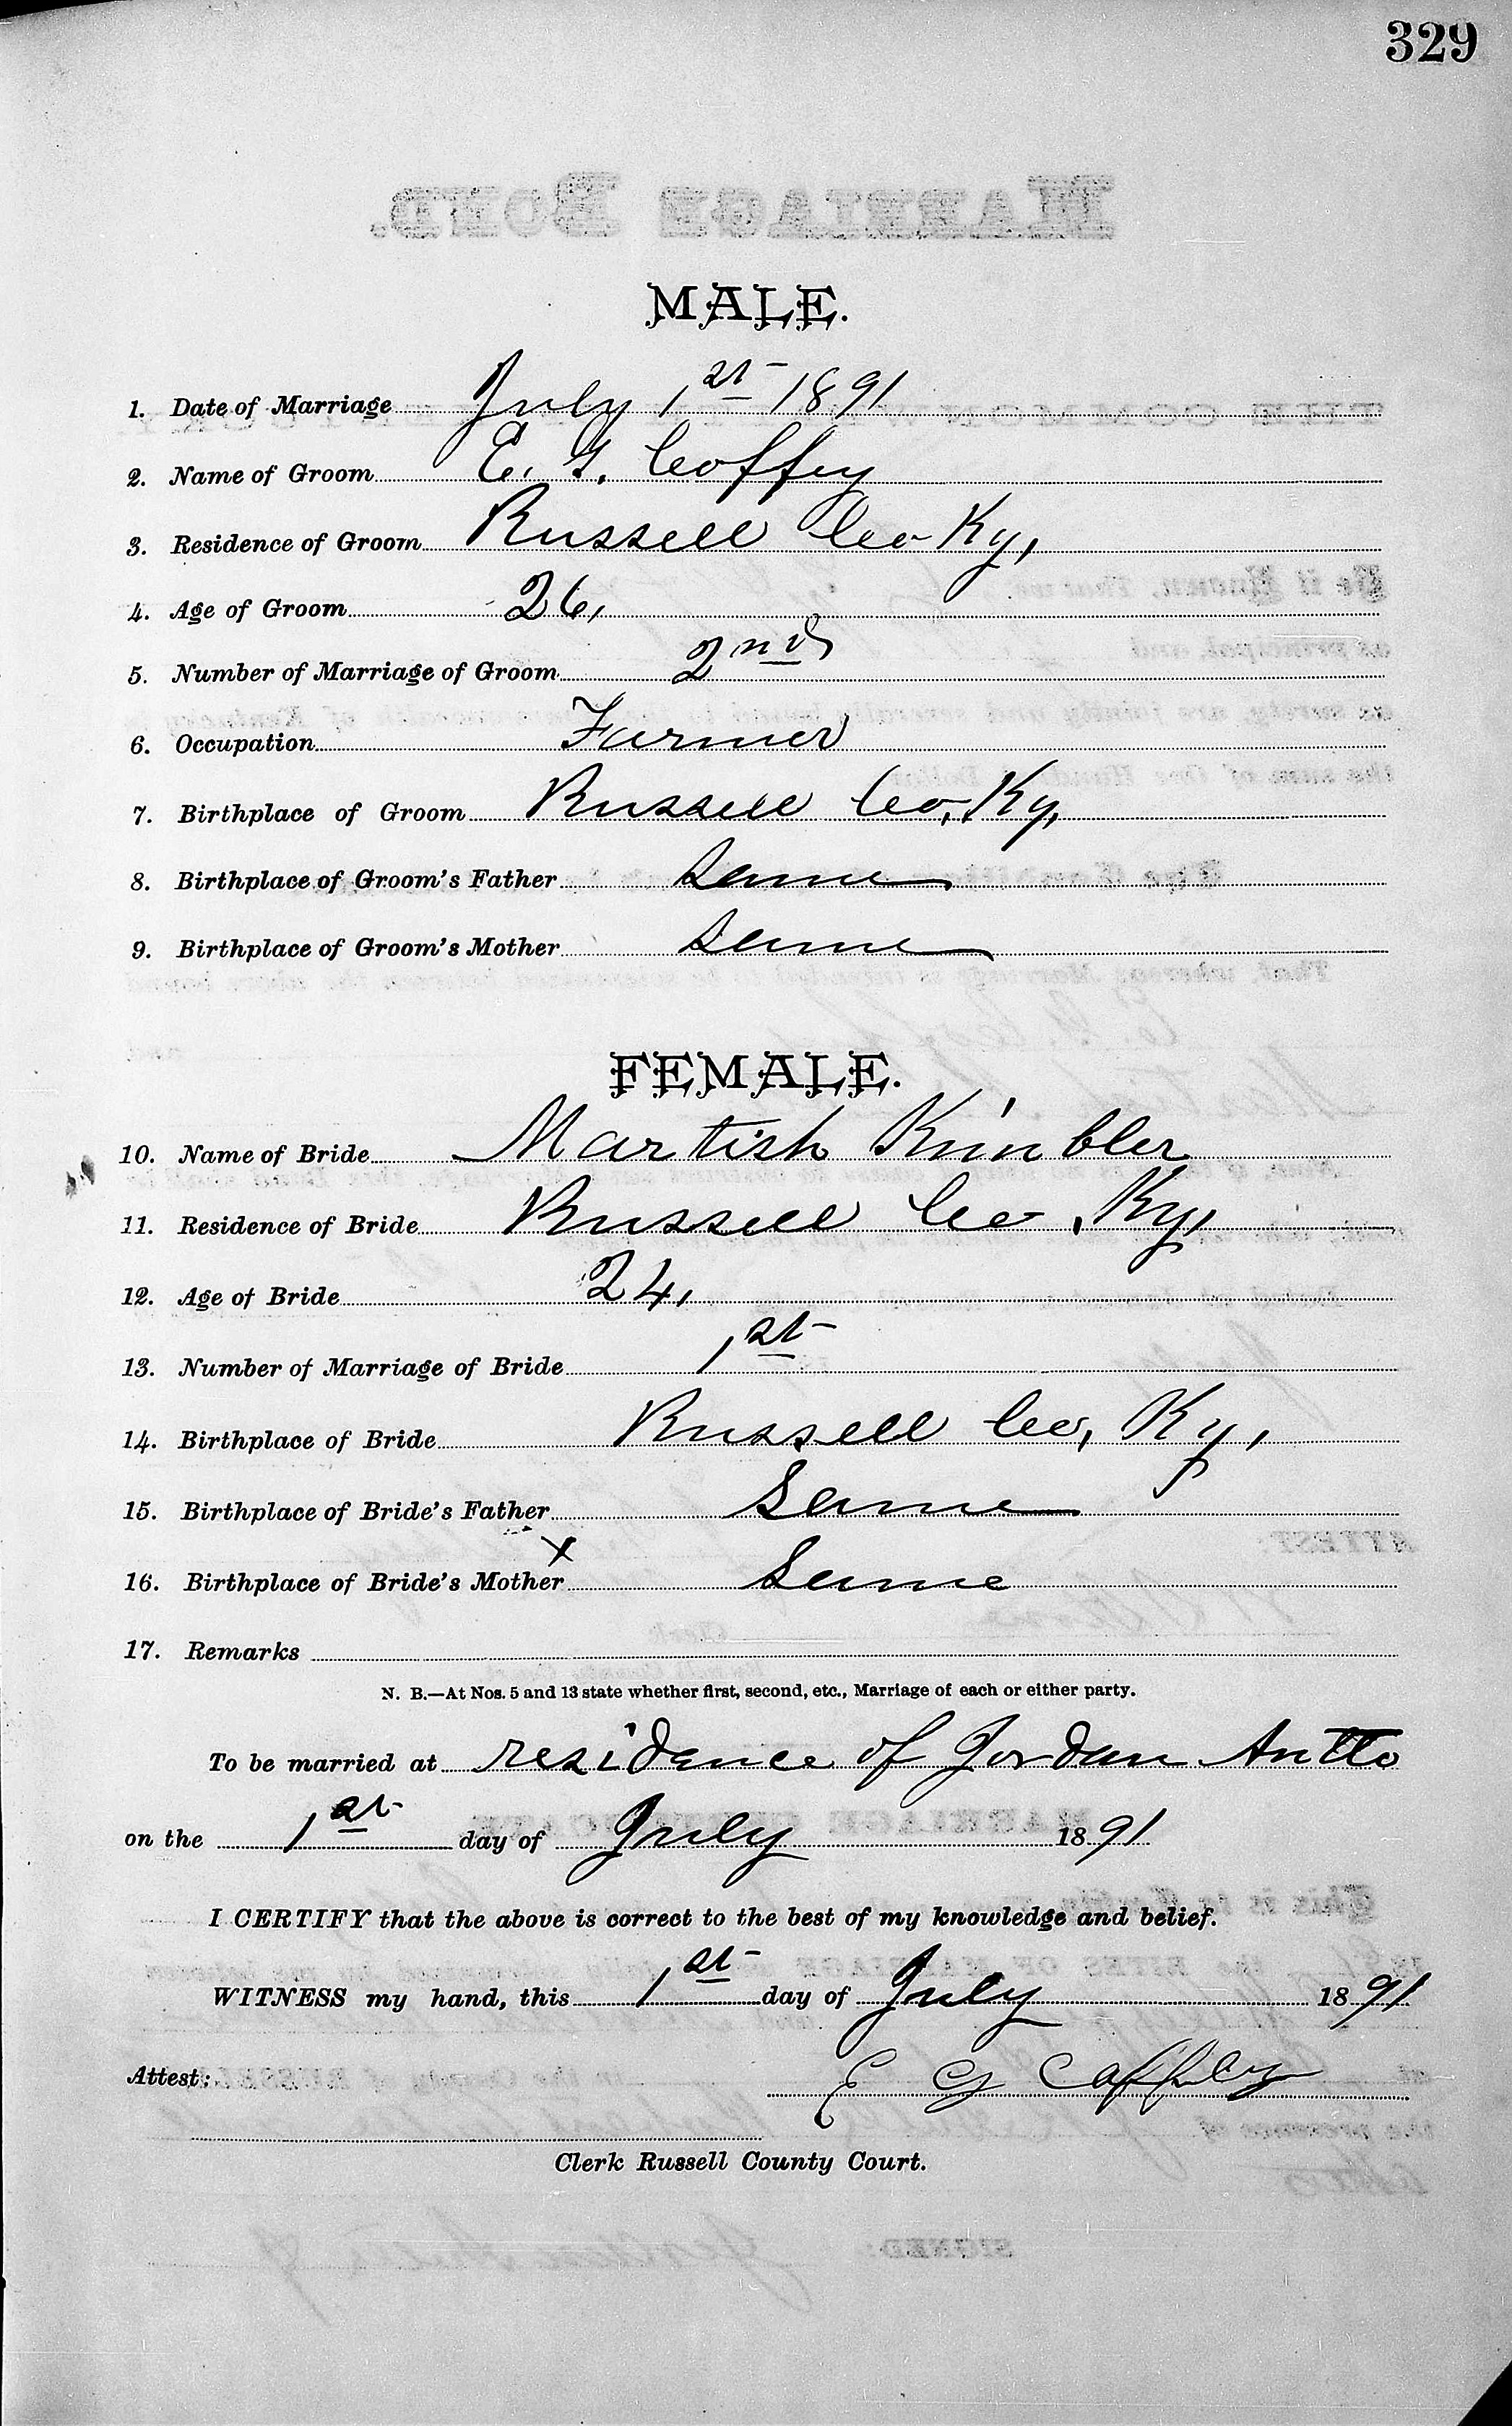 329
MALE.
1. Date of Marriage July 1st 1891
2. Name of Groom E. G. Coffey
3. Residence of Groom Russell Co Ky,
4. Age of Groom 26,
5. Number of Marriage of Groom 2nd
6. Occupation Farmer
7. Birthplace of Groom Russell Co, Ky,
8. Birthplace of Groom's Father Same
9. Birthplace of Groom's Mother Same
FEMALE.
10. Name of Bride Martish Kimbler
11. Residence of Bride Russell Co, Ky,
12. Age of Bride 24,
13. Number of Marriage of Bride 1st
14. Birthplace of Bride Russell Co, Ky,
15. Birthplace of Bride's Father Same
X
16. Birthplace of Bride's Mother Same
17. Remarks
N. B.—At Nos. 5 and 13 state whether first, second, etc., Marriage of each or either party.
To be married at residence of Jordan
on the 1st day of July 1891
I CERTIFY that the above is correct to the best of my knowledge and belief.
WITNESS my hand, this 1st day of July 1891
Attest: E G Coffey
Clerk Russell County Court.